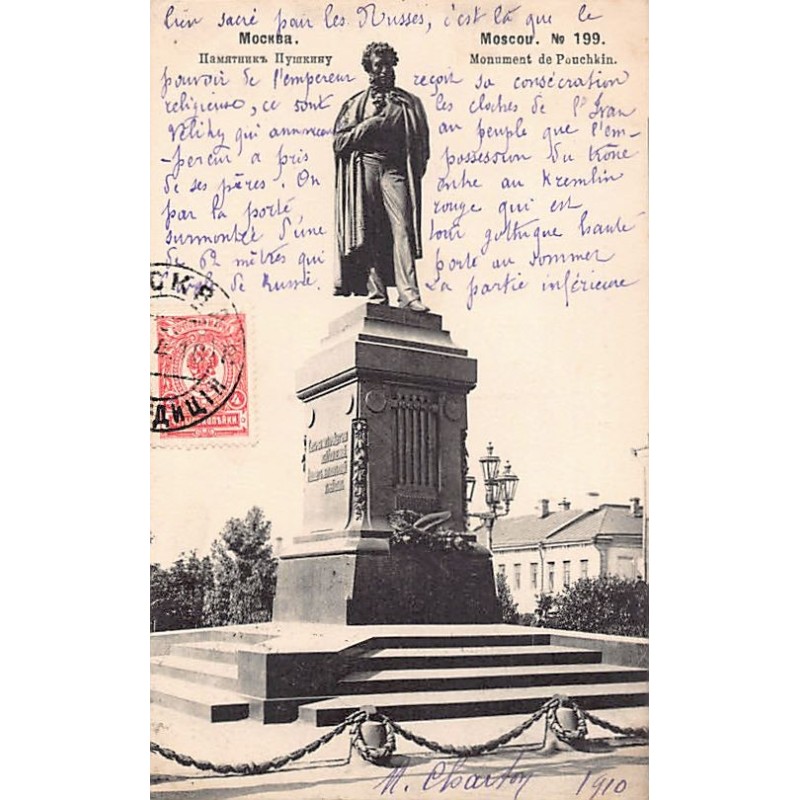 lieu sacré pour les Russes, c'est là que le
Москва.
Moscou. № 199.
Памятникъ Пушкину
Monument de Pouchkin.
pouvoir de l'empereur reçoit sa consécration
religieuse, ce sont les cloches de l'Ivan
Veliky qui annoncent au peuple que l'em-
-pereur a pris possession du trône
de ses pères. On entre au Kremlin
par la porte rouge qui est
surmontée d'une tour gothique haute
de 62 mètres qui porte au sommet
de Russie. La partie inférieure
МОСКВА
ДИЦІЯ
4
КОПѢЙКИ
Charton 1910